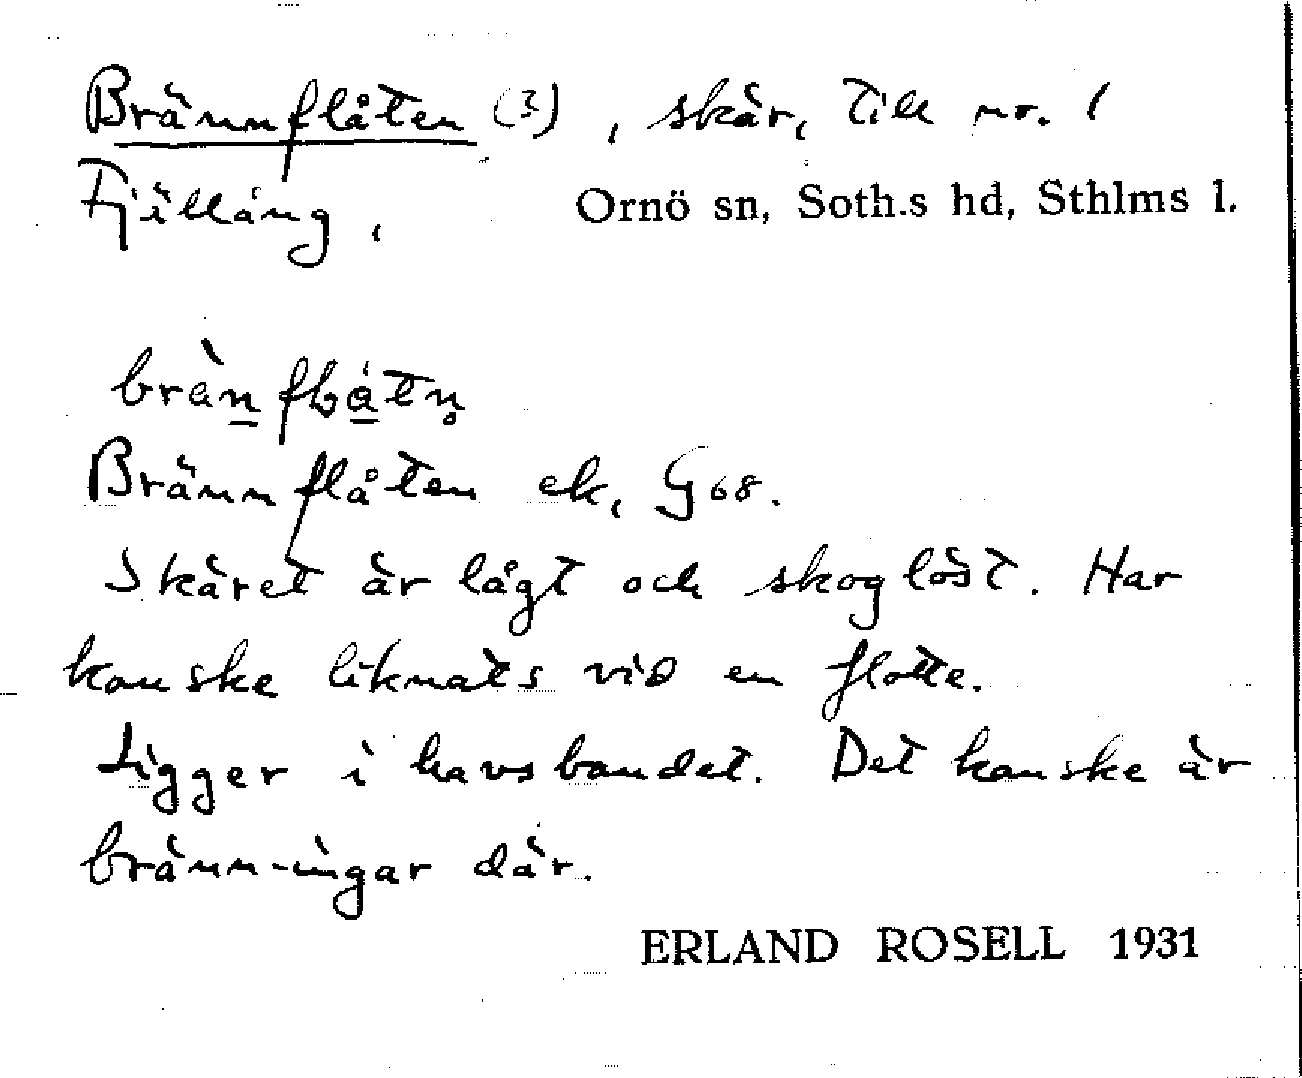 Brännflåten (3), skär, till nr. 1
Fjällång, Ornö sn, Soth.s hd, Sthlms l.
Brännflåten ek, G 68.
Skäret är lågt och skoglöst. Har
kanske liknats vid en flotte.
Ligger i havsbandet. Det kanske är
bränn-ingar där.
ERLAND ROSELL 1931